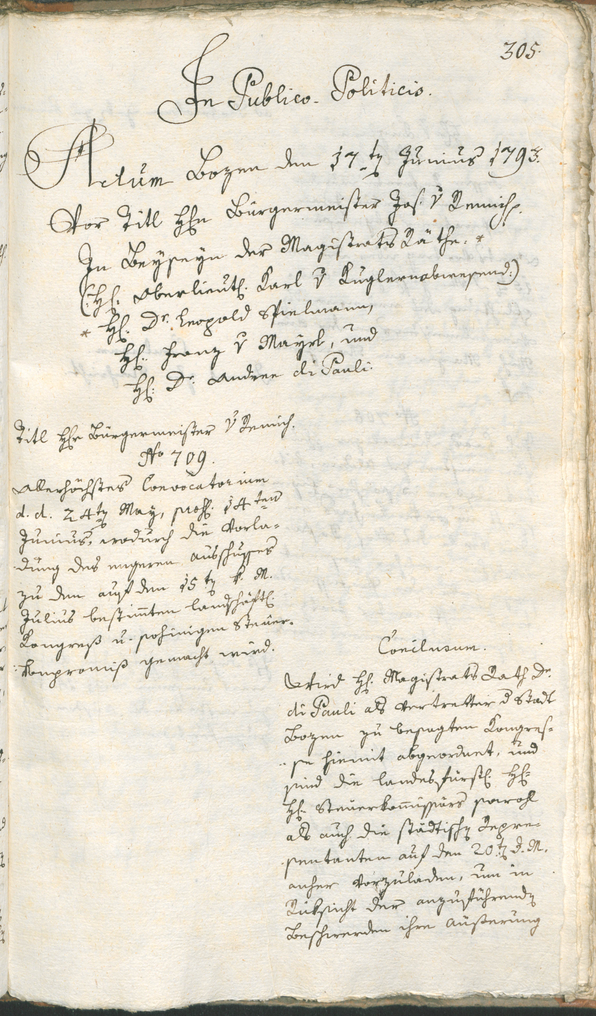 305.
In Publico-Politicis.
Actum Bozen den 17ty Junius 1793.
Vor Titl Hn Bürgermeister Jos. v Remich.
In Beyseyn der Magistrats Räthe. *
(: H. Oberlieut. Karl v Kuglern abwesend :)
* H. Dr. Leopold Spielmann,
H. Franz v Mayrl, und
H. Dr. Andree di Pauli.
Titl Hr Bürgermeister v Remich.
No 709.
Allerhöchstes Convocatorium
d. d. 24ty May, 14ten
Junius, wodurch die Vorla-
dung des engeren Ausschusses
zu dem auf den 15ty k. M.
Julius bestimten landschäftl.
Kongreß u. sohinigen Steuer-
kompromiß gemacht wird.
Conclusum.
Wird H. Magistrats Rath Dr.
di Pauli als Vertretter d Stadt
Bozen zu besagten Kongres-
se hiemit abgeordnet, und
sind die landesfürstl. H.
H. Steuerkommissärs sowohl
als auch die städtischen Reprä-
sentanten auf den 20ty d. M.
anher vorzuladen, um in
Rüksicht der anzuführenden
Beschwerden ihre Äußerung